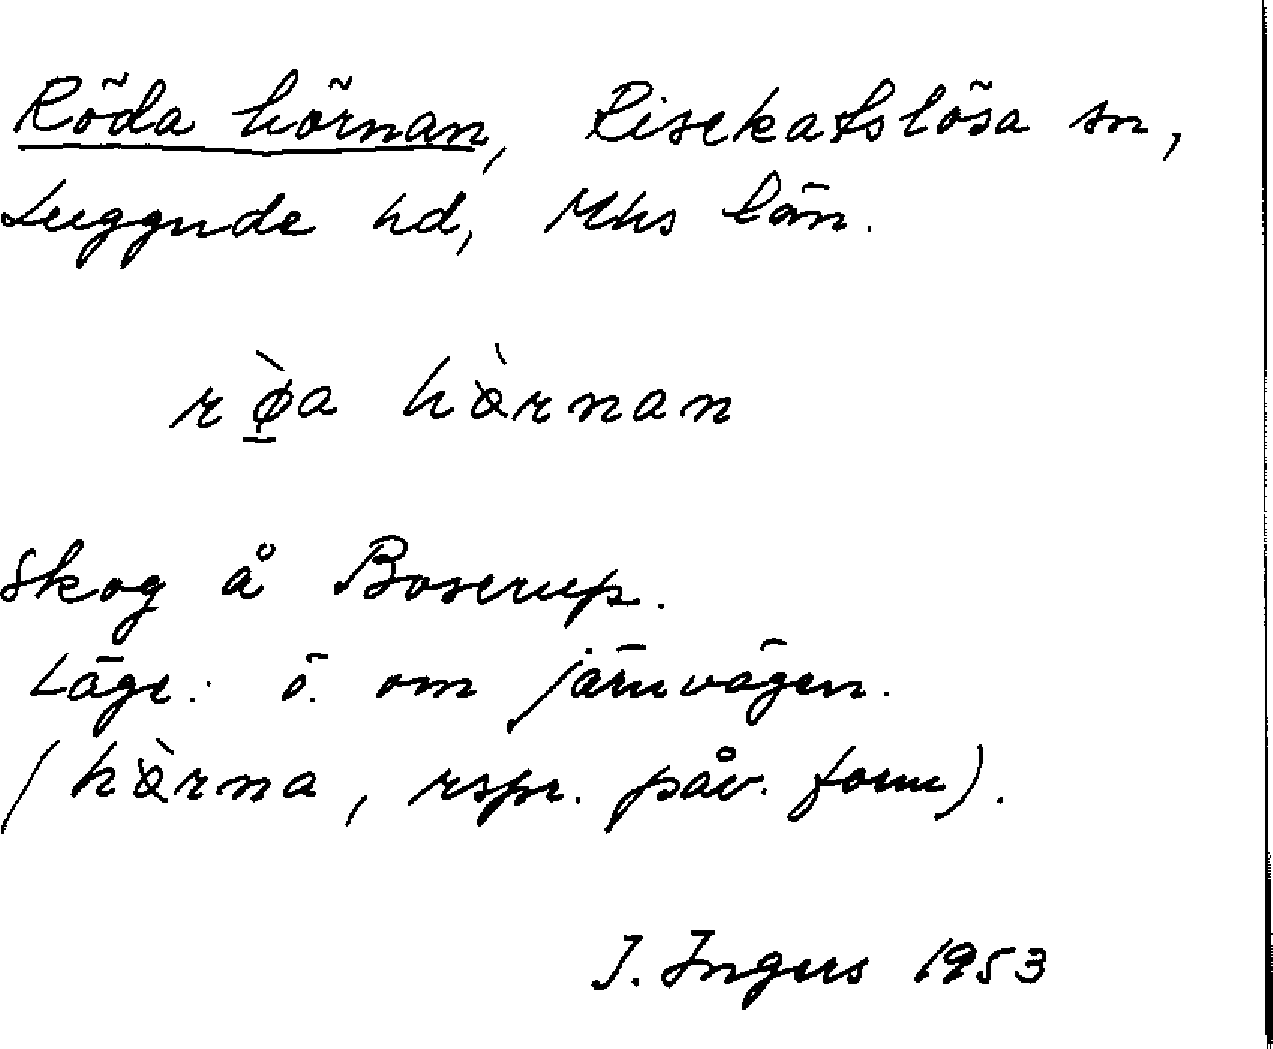 Röda hörnan, Risekatslösa sn,
Luggude hd, Mhs län.
rø̠̀a hὰrnan
Skog å Boserup.
Läge: ö. om järnvägen.
(hὰrna, rspr. påv. form).
I. Ingers 1953